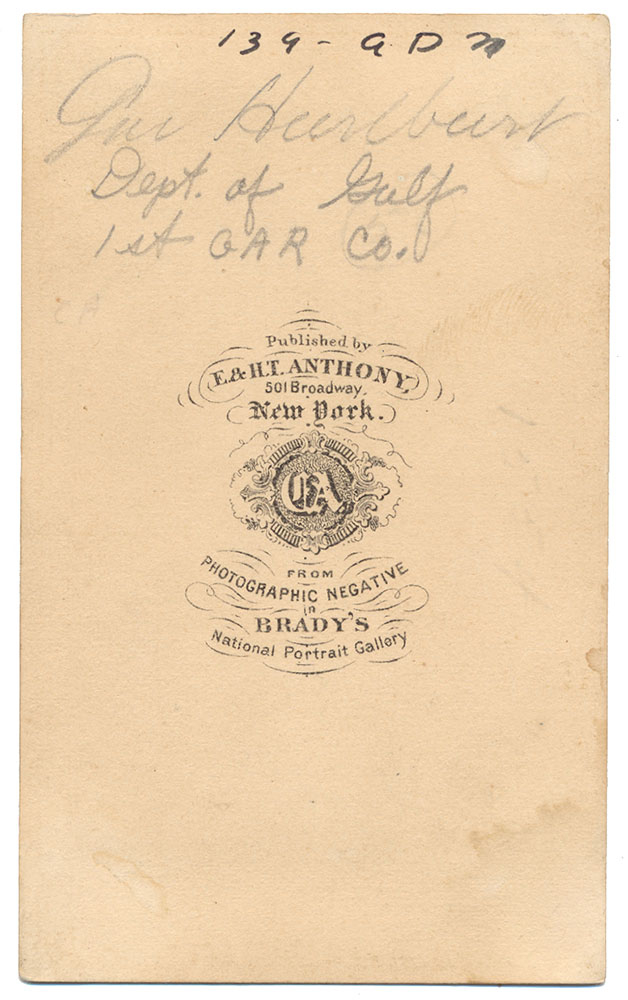 139 - G D M
Gen Hurlburt
Dept. of Gulf
1st GAR Co.
CA
Published by
E. & H.T. ANTHONY,
501 Broadway,
New York.
FROM
PHOTOGRAPHIC NEGATIVE
in
BRADY'S
National Portrait Gallery